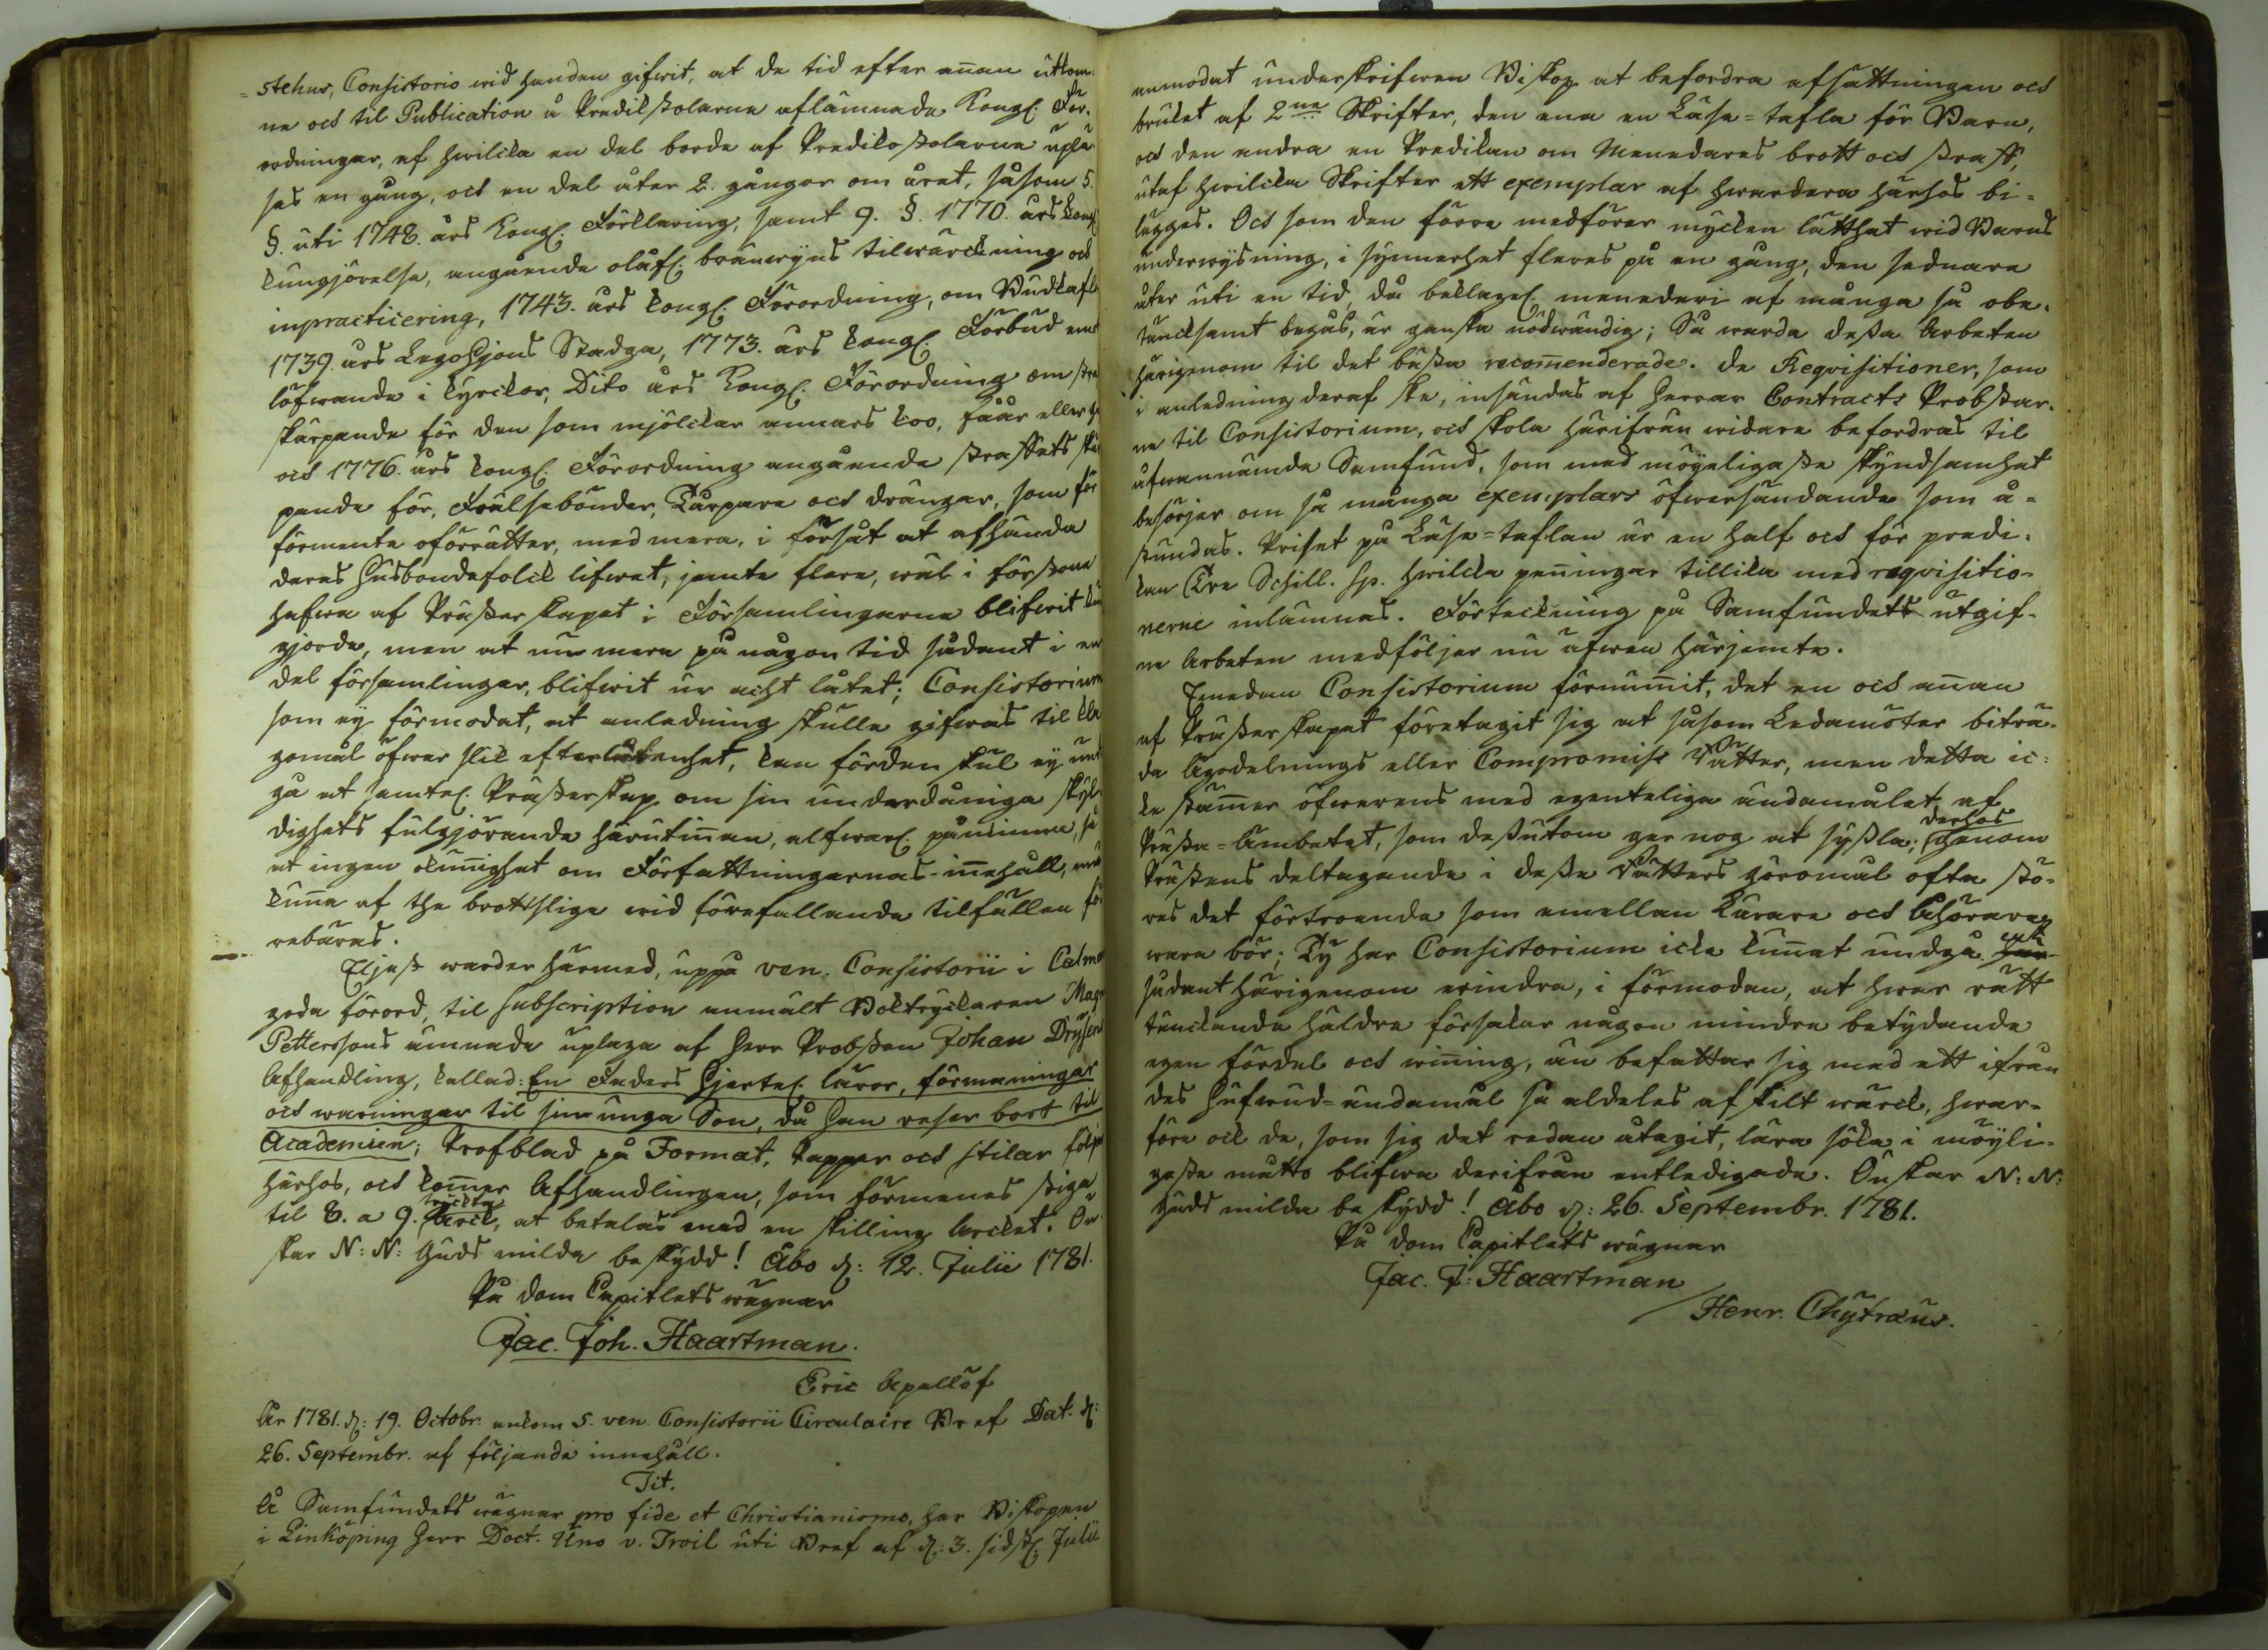 stehus, Consistorio wid handen gifwit, at de tid efter anan utkom-
ne och til Publication å Predikstolarne aflämnade Kongl. För-
ordningar, af hwilcka en del borde af Predikostolarne uplä-
sas en gång, och en del åter 2. gångor om året, såsom 5.
§. uti 1748. års Kongl. Förklaring, samt 9. §. 1770. års Kongl
kungjörelse, angående olåfl. bränwyns tilwärckning och
inpracticering, 1743. års Kongl. Förordning, om Budkafl
1739. års LegoHjons Stadga, 1773. års Kongl. Förbud emot
löfwande i Kyrckor, Dito års Kongl. Förordning om stra
skärpande för den som mjölckar annars koo, fåår eller ge
och 1776. års Kongl. Förordning angående straffets skär
pande för, Frälsebönder, Tårpare och drängar, som för
förmente oförrätter, med mera, i försåt at afhända
deras Husbondefolck lifwet, jemte flere, wäl i förstone
hafwa af Prästerskapet i Församlingarne blifwit kun
gjorde, men at nu mera på någon tid sådant i en
del församlingar, blifwit ur acht låtet; Consistorium
som ey förmodat, at anledning skulle gifwas til kla
gomål öfwer slik efterlåtenhet, kan fördenskul ey und
gå at samtel. Prästerskap om sin underdåniga skyl
dighets fulgjörande härutinan, alfwarl. påminna, så
at ingen okunighet om Författningarnas inehåll, må
kuna af the brottslige wid förefallande tilfällen fö
rebäras.
Eljest warder härmed, uppå ven. Consistorii i Calmar
goda förord, til subscription anmält Boktryckaren Mag
Petterssons ämnade uplaga af Herr Probsten Johan Dryseni
Afhandling, kallad: En Faders Hjertel. läror, förmaningar
och warningar til sin unga Son, då han reser bort til
Academien; Profblad på Format, Papper och stilar följa
härhos, och komer Afhandlingen, som förmenes stiga
til 8. a 9. tryckta arck, at betalas med en skilling arcket. Ön
skar N: N: Guds milda beskydd! Åbo d: 12. Julii 1781.
På Dom Capitlets wägnar
Jac. Joh. Haartman.
Eric Apellöf
År 1781. d: 19. Octobr. ankom s. ven. Consistorii Circulaire Bref Dat. d:
26. Septembr. af följande innehåll.
Tit.
Å Samfundets wägnar pro fide et Christianismo, har Biskopen
i Linköping Herr Doct. Uno v. Troil uti Bref af d: 3. sidstl. Julii
anmodat underskrifwen Biskop at befordra afsättningen och
bruket af 2ne Skrifter, den ena en Läse-tafla för Barn,
och den andra en Predikan om Menedares brott och straff,
utaf hwilcka Skrifter ett exemplar af hwardera härhos bi-
lägges. Och som den förra medförer mycken lätthet wid Barns
underwysning, i synnerhet fleres på en gång, den sednare
åter uti en tid, då beklagel. menederi af många så obe-
täncksamt begås, är ganska nödwändig; Så warda dessa Arbeten
härigenom til det bästa recommenderade. De Reqvisitioner, som
i anledning deraf ske, insändas af Herrar Contracts Probstar-
ne til Consistorium, och skola härifrån widare befordras til
åfwannämde Samfund, som med möyeligaste skyndsamhet
besörjer om så många exemplars öfwersändande som å-
stundas. Priset på Läse-taflan är en half och för predi-
kan Tre Schill. sp. hwilcka peningar tillika med reqvisitio-
nerne inlämnas. Förteckning på Samfundets utgif-
ne Arbeten medföljer nu äfwen härjemte.
Emedan Consistorium förnumit, det en och anan
af Prästerskapet företagit sig at såsom Ledamöter biträ-
da Ägodelnings eller Compromiss Rätter, men detta ic-
ke stämer öfwerens med egenteliga ändamålet af
Prästa-Ämbetet, som dessutom ger nog at syssla; derhos genom
Prästens deltagande i desse Rätters göromål ofta stö-
res det förtroende som emellan Lärare och Åhörare
wara bör; Ty har Consistorium icke kunat undgå at
sådant härigenom erindra, i förmodan, at hwar rätt
tänckande häldre försakar någon mindre betydande
egen fördel och wining, än befattar sig med ett ifrån
des Hufwud-ändamål så aldeles afskilt wärck, hwar-
före ock de, som sig det redan åtagit, lära söka i möyli-
gaste måtto blifwa derifrån entledigade. Önskar N: N:
Guds milda beskydd! Åbo d: 26. Septembr. 1781.
På Dom Capitlets wägnar
Jac. J: Haartman
Henr. Chytræus.